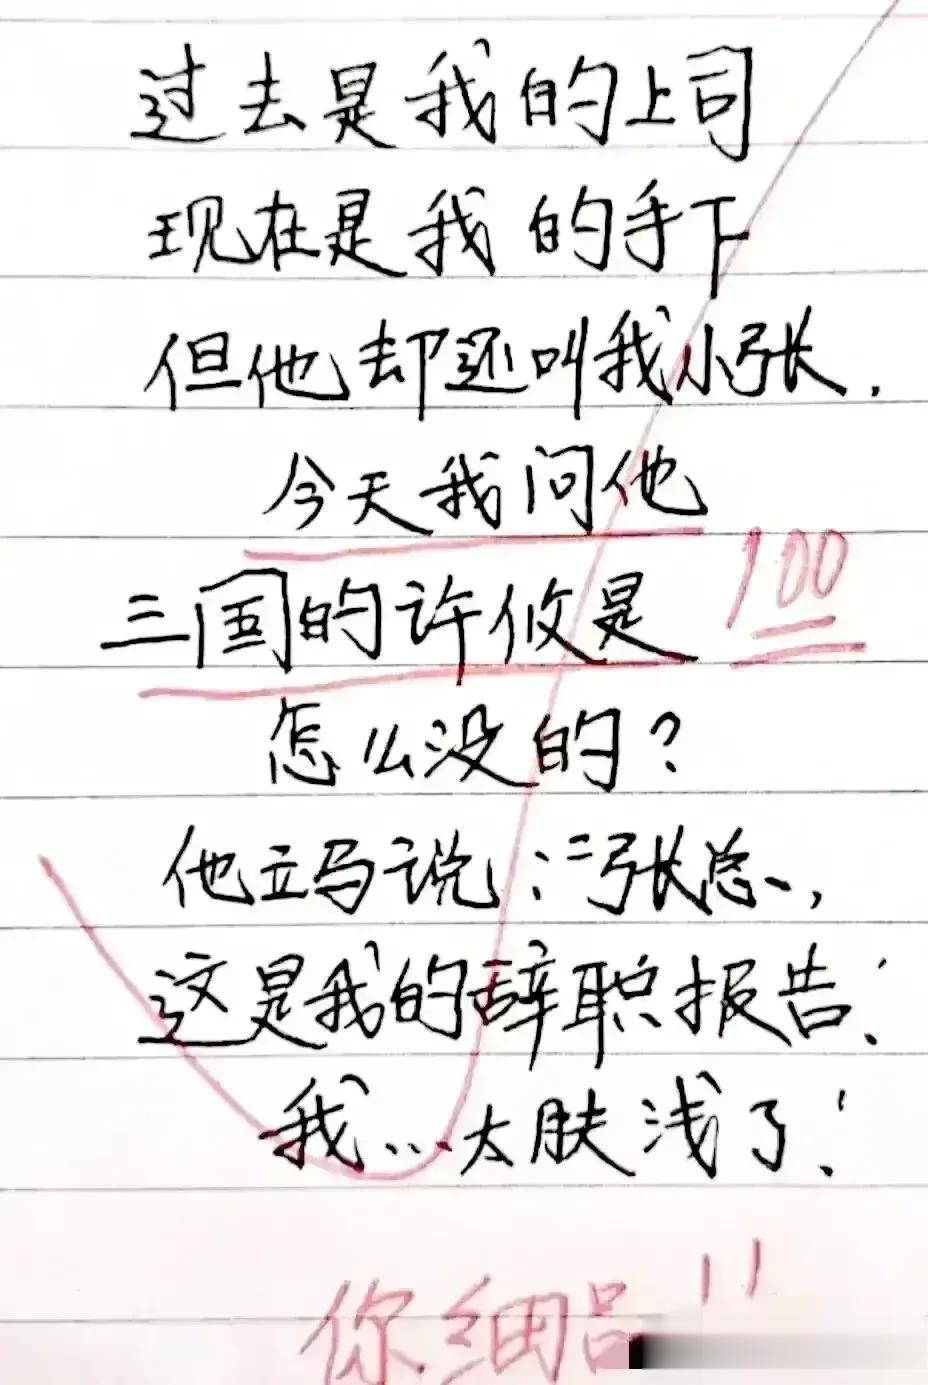 过去是我的上司
现在是我的手下
但他却还叫我小张.
今天我问他
三国的许攸是
100
怎么没的?
他立马说:"张总,
这是我的辞职报告!
我...太肤浅了!
你细品!!